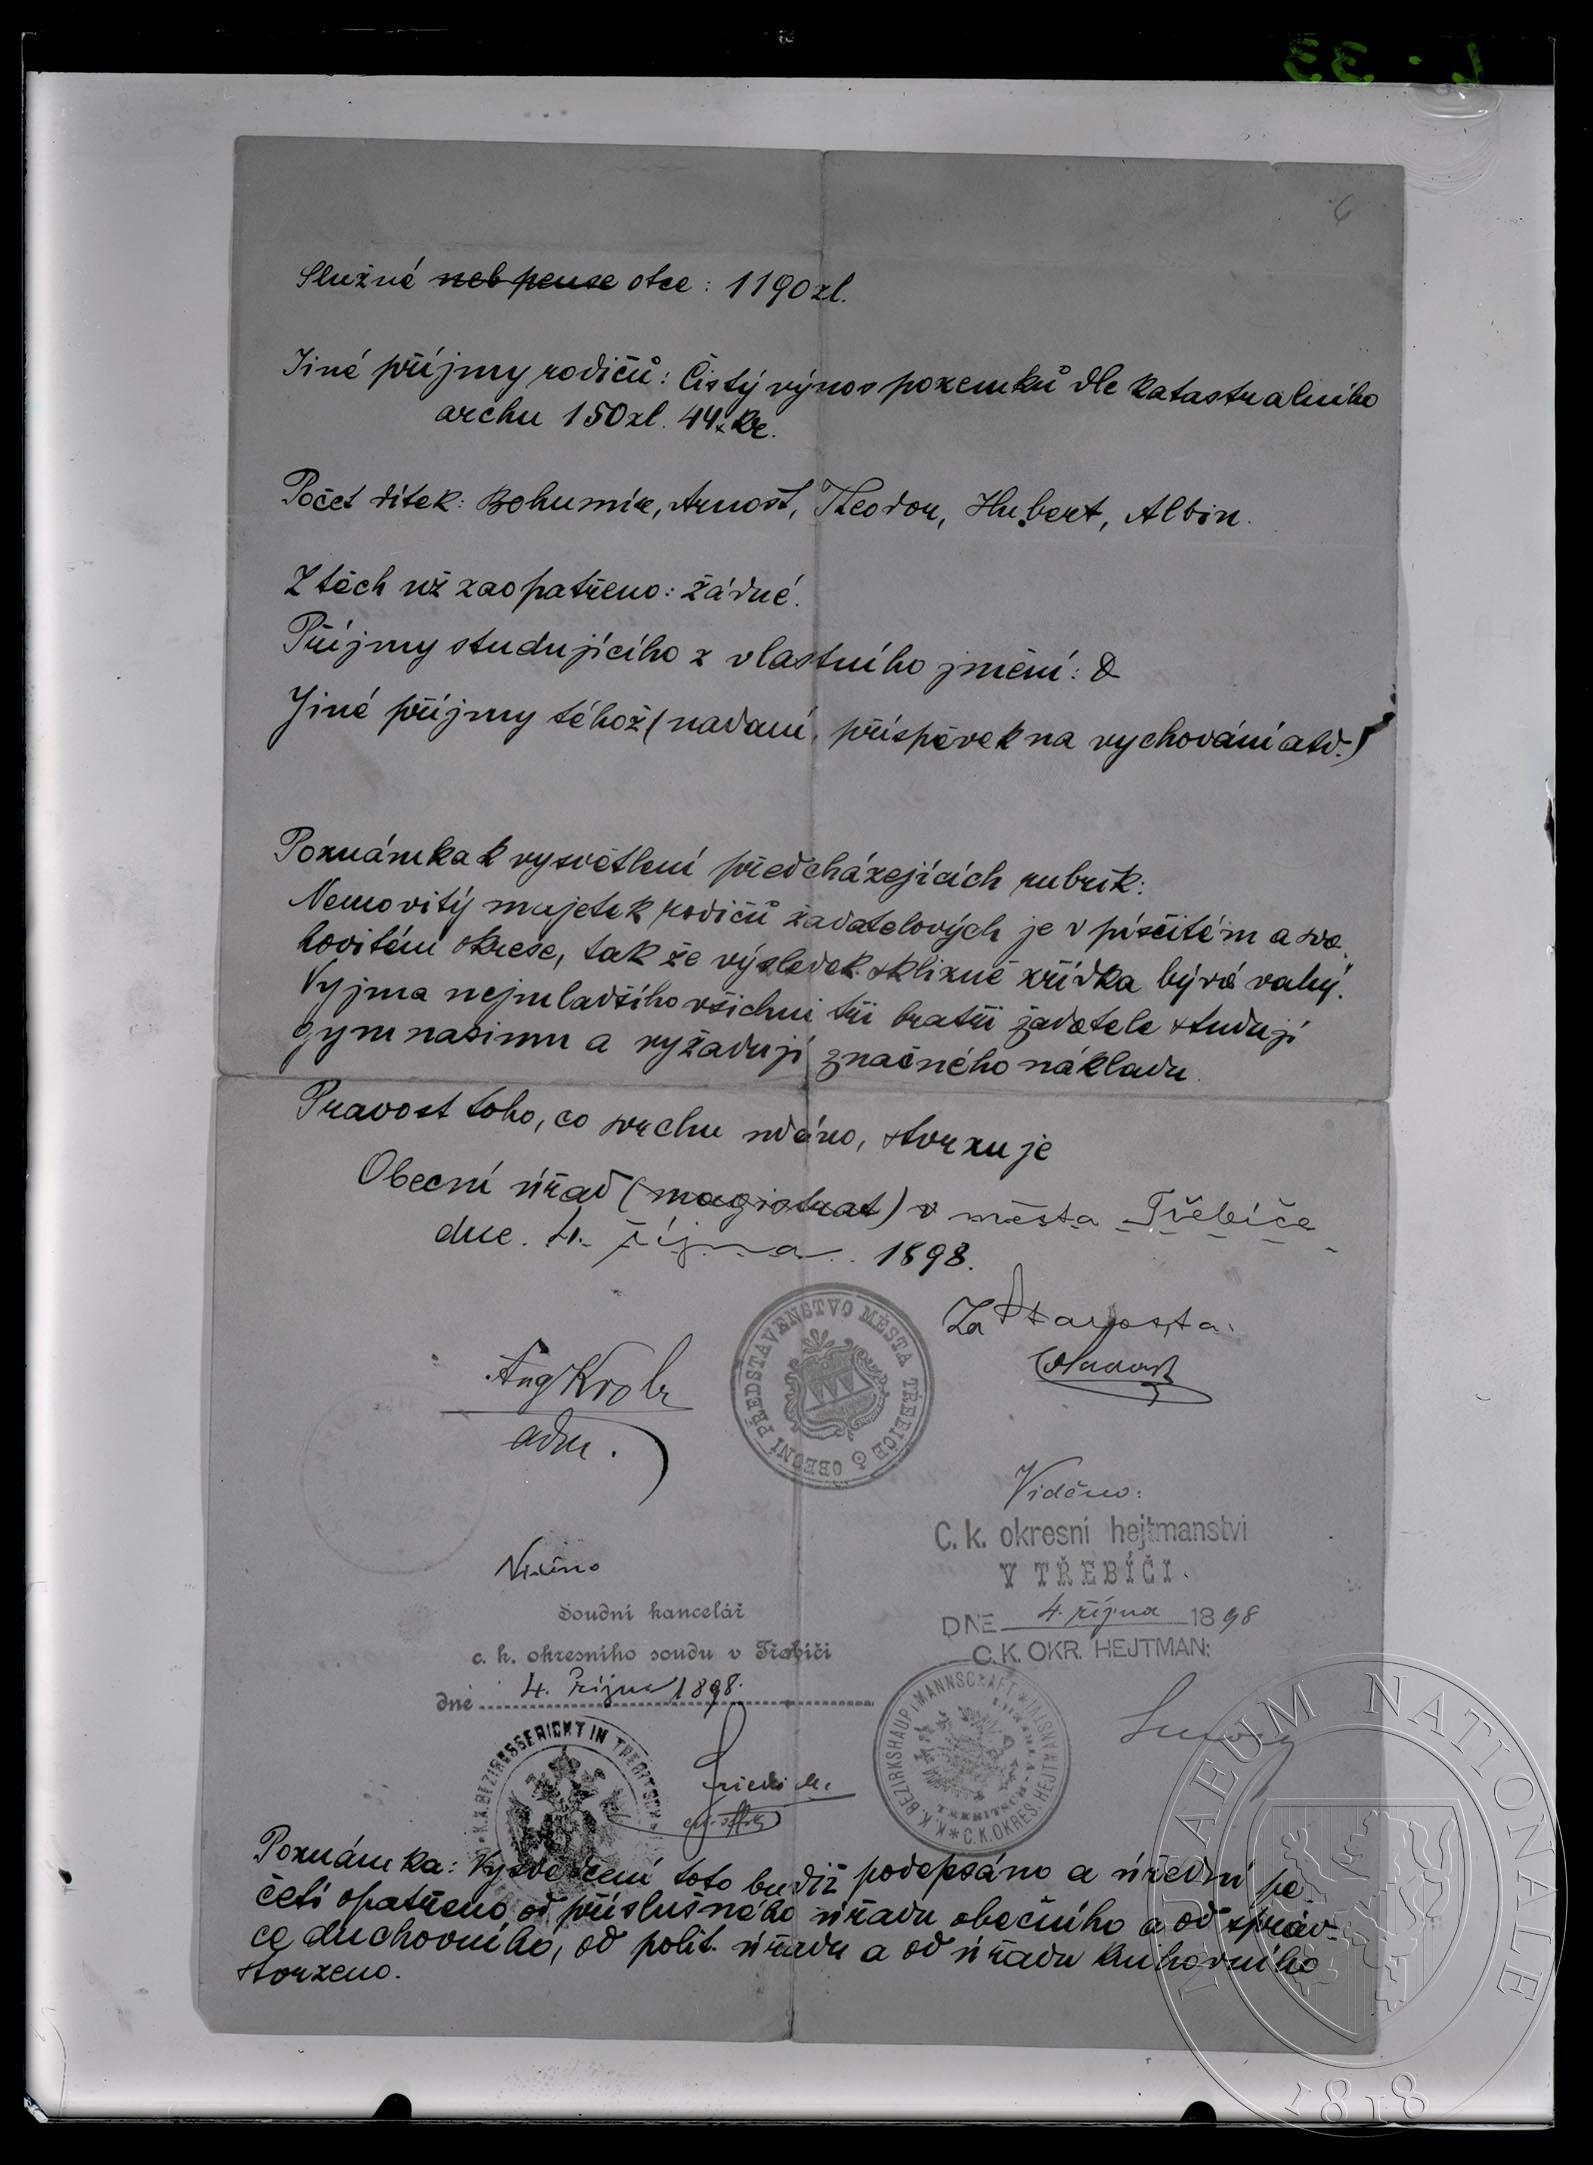 6
Služné neb pense otce: 1190 zl.
Jiné příjmy rodičů: Čistý výnos pozemků dle katastralního
archu 150 zl. 44 kr.
Počet dítek: Bohumír, Arnošt, Theodor, Hubert, Albín.
Z těch už zaopatřeno: žádné.
Příjmy studujícího z vlastního jmění:
Jiné příjmy téhož (nadaní, příspěvek na vychování atd.)
Poznámka k vysvětlení předcházejících rubrik:
Nemovitý majetek rodičů žadatelových je v písčitém a sva-
hovitém okrese, tak že výsledek sklizně zřídka bývá valný.
Vyjma nejmladšího všichni tři bratři žadatele studují
gymnasium a vyžadují značného nákladu.
Pravost toho, co svrchu udáno, stvrzuje
Obecní úřad (magistrat) v města Třebíče
dne. 4. října 1898.
OBECNÍ PŘEDSTAVENSTVO MĚSTA TŘEBÍČE
Za Starosta:
Aug Krob
adm.
Viděno:
C. k. okresní hejtmanství
V TŘEBÍČI.
DNE 4. října 1898
C.K. OKR. HEJTMAN:
Viděno
Soudní kancelář
c. k. okresního soudu v Třebíči
dne 4. Října 1898.
K.K. BEZIRKSGERICHT IN TREBITSCH
K.K. BEZIRKSHAUPTMANNSCHAFT * C.K. OKRES. HEJTMANSTVÍ
TREBITSCH
Poznámka: Vysvědčení toto budiž podepsáno a úřední pe-
četí opatřeno od příslušného úřadu obecního a od správ-
ce duchovního, od polit. úřadu a od úřadu knihovního
stvrzeno.
MUSAEUM NATIONALE
1818